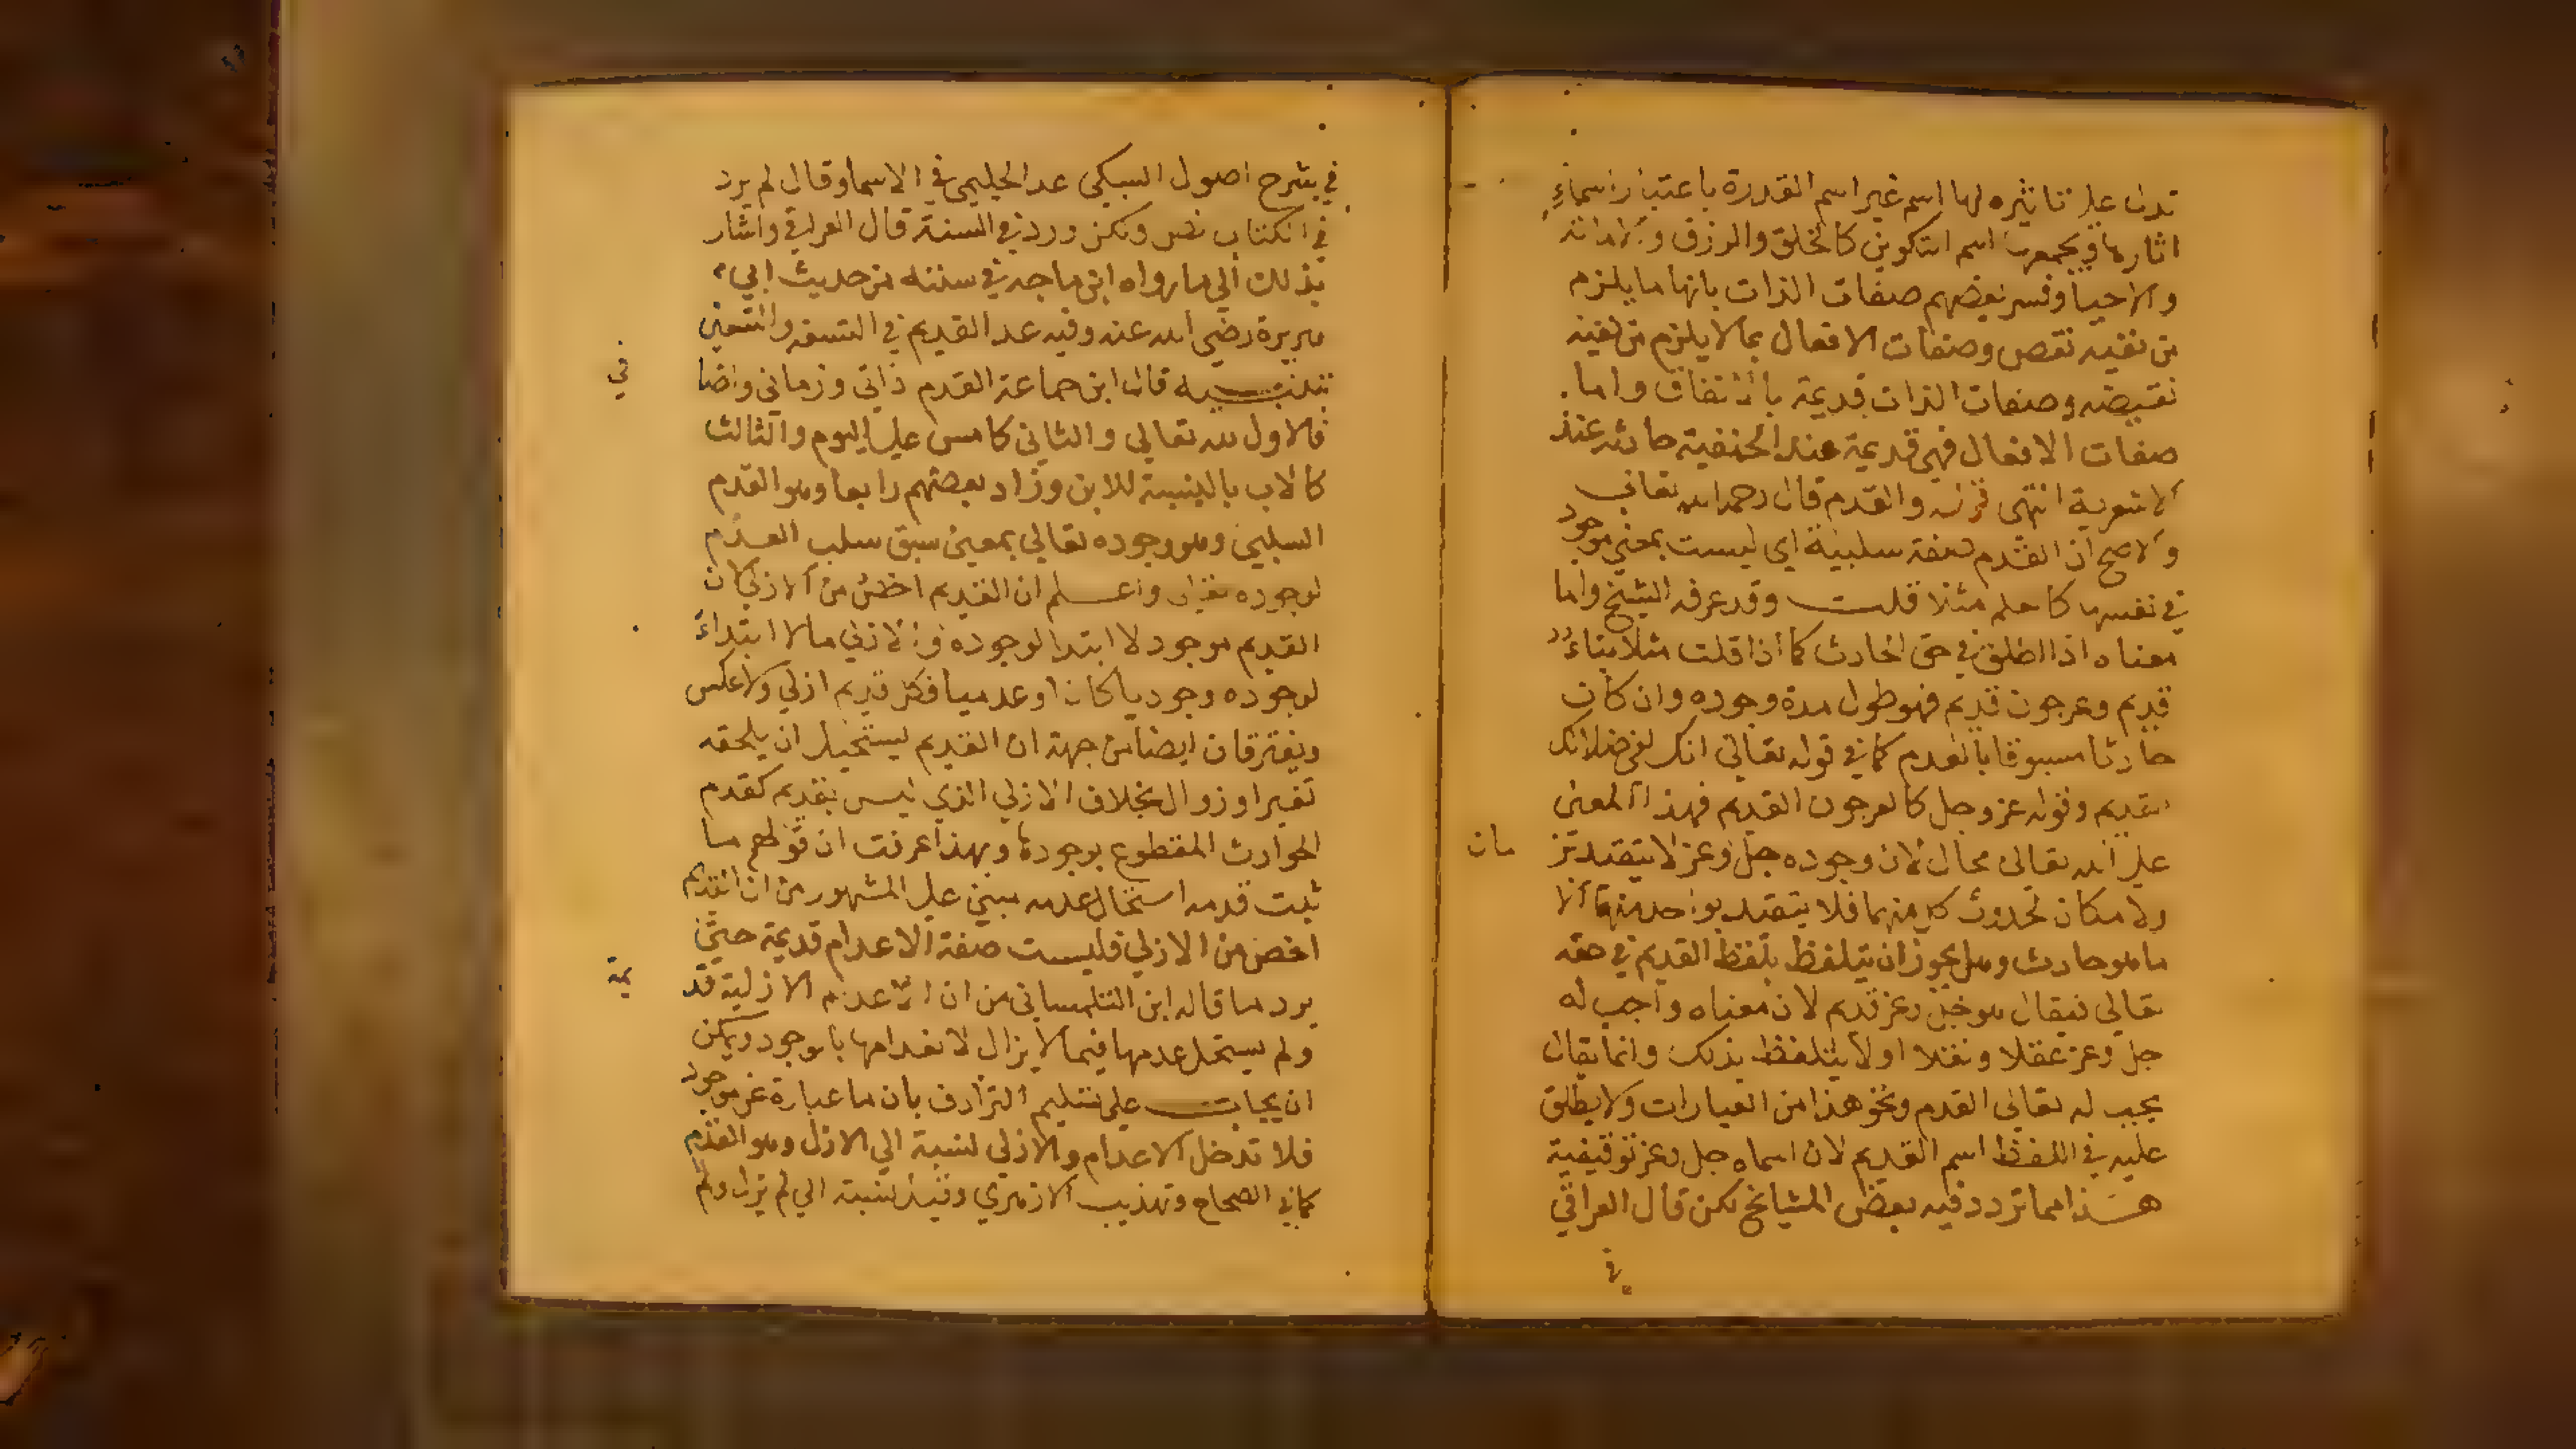 تدل على تاثيره لها اسم غير اسم القدرة باعتبار اسماء
اثارها ويجمعها اسم التكوين كالخلق والرزق والاماتة
والاحيا وفسر بعضهم صفات الذات بانها ما يلزم
من نفيه نقص وصفات الافعال بما لا يلزم من نفيه
نقيضه وصفات الذات قديمة بالاتفاق واما
صفات الافعال فهي قديمة عند الحنفية حادثه عند
الاشعرية انتهى قوله والقدم قال رحمه الله تعالى
والاصح ان القدم صفة سلبية اي ليست بمعني موجود
في نفسها كالعلم مثلا قلت وقد عرفه الشيخ واما
معناه اذا اطلق في حق الحادث كما اذا قلت مثلا بناء
قديم وعرجون قديم فهو طول مدة وجوده وان كان
حادثا مسبوقا بالعدم كما في قوله تعالى انك لفي ضلالك
القديم وقوله عز وجل كالعرجون القديم فهذا المعنى
على الله تعالى محال لان وجوده جل وعز لا يتقيد بز
مان
ولا مكان لحدوث كل منهما فلا يتقيد بواحد منهما الا
ما هو حادث وهل يجوز ان يتلفظ بلفظ القديم في حقه
تعالى فيقال هو جل وعز قديم لان معناه واجب له
جل وعز عقلا ونقلا او لا يتلفظ بذلك وانما يقال
يجب له تعالى القدم ونحو هذا من العبارات ولا يطلق
عليه في اللفظ اسم القديم لان اسماه جل وعز توقيفية
هذا مما تردد فيه بعض المشايخ لكن قال العراقي
في
في شرح اصول السبكي عد الحليمي في الاسما وقال لم يرد
في الكتاب نص ولكن ورد في السنة قال العراقي واشار
بذلك الي ما رواه ابن ماجه في سننه من حديث ابي
هريرة رضي الله عنه وفيه عد القديم في التسعة والتسعين
تنبيه قال ابن جماعة القدم ذاتي وزماني واضا
في
فالاول لله تعالي والثاني كامس علي اليوم والثالث
كالاب بالنسبة للابن وزاد بعضهم رابعا وهو القدم
السلبي وهو وجوده تعالي بمعنى سبق سلب العدم
لوجوده تعالى واعلم ان القديم اخص من الازلي لان
القديم موجود لا ابتدا لوجوده والازلي ما لا ابتداء
لوجوده وجوديا كان او عدميا فكل قديم ازلي ولا عكس
ويفترقان ايضا من جهة ان القديم يستحيل ان يلحقه
تغير او زوال بخلاف الازلي الذي ليس بقديم كقدم
الحوادث المقطوع بوجودها وبهذا عرفت ان قولهم ما
ثبت قدمه استحال عدمه مبني على المشهور من ان القديم
اخص من الازلي فليست صفة الاعدام قديمة حتى
يرد ما قاله ابن التلمساني من ان الاعدام الازلية قد
يمة
ولم يستحل عدمها فيما لا يزال لانعدامها بالوجود ويمكن
ان يجاب على تسليم الترادف بان ما عبارة عن موجود
فلا تدخل الاعدام والازلي نسبة الي الازل وهو القدم
كما في الصحاح وتهذيب الازهري وقيل نسبة الي لم يزل ولم